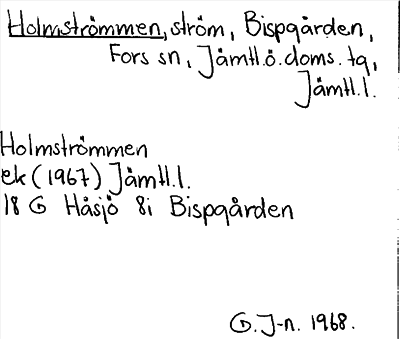 Holmströmmen, ström, Bispgården,
Fors sn, Jämtl.ö.doms. tg,
Jämtl.l.
Holmströmmen
ek (1967) Jämtl.l.
18 G Håsjö 8i Bispgården
G. J-n. 1968.